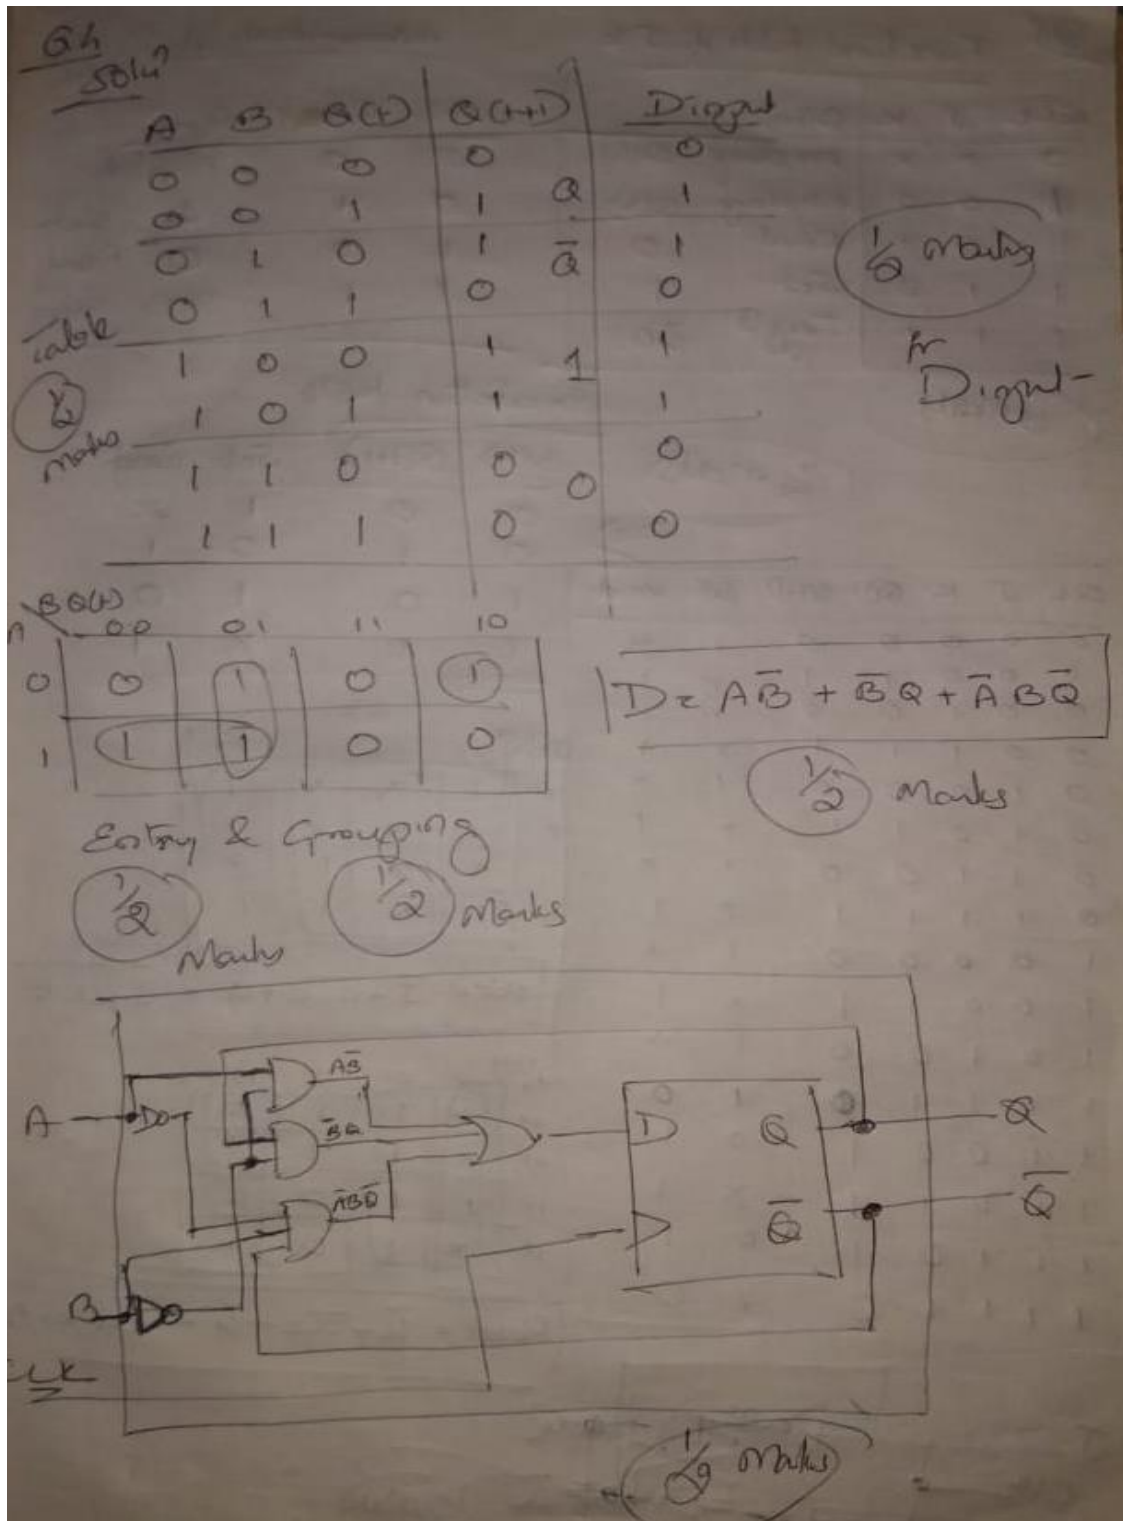 Q4
Soln
A B Q(t) Q(t+1) D input
0 0 0 0 0
0 0 1 1 Q 1
0 1 0 1 Q̅ 1
0 1 1 0 0
1 0 0 1 1 1
1 0 1 1 1
1 1 0 0 0 0
1 1 1 0 0
Table
1/2
Marks
1/2 Marks
for
D input
A BQ(t)
00 01 11 10
0 0 1 0 1
1 1 1 0 0
D = AB̅ + B̅Q + A̅BQ̅
1/2 Marks
Entry & Grouping
1/2 Marks 1/2 Marks
AB̅
A B̅Q D Q Q
A̅BQ̅ Q̅ Q̅
B
CLK
1/2 Marks